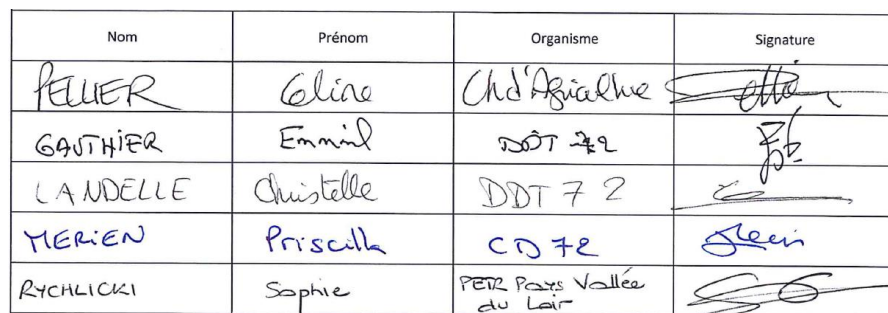 Nom Prénom Organisme Signature
PELLIER Céline Ch d'Agriculture
GAUTHIER DDT 72
LANDELLE Christelle DDT 72
MERIEN Priscilla CD 72
RYCHLICKI Sophie PETR Pays Vallée
du Loir